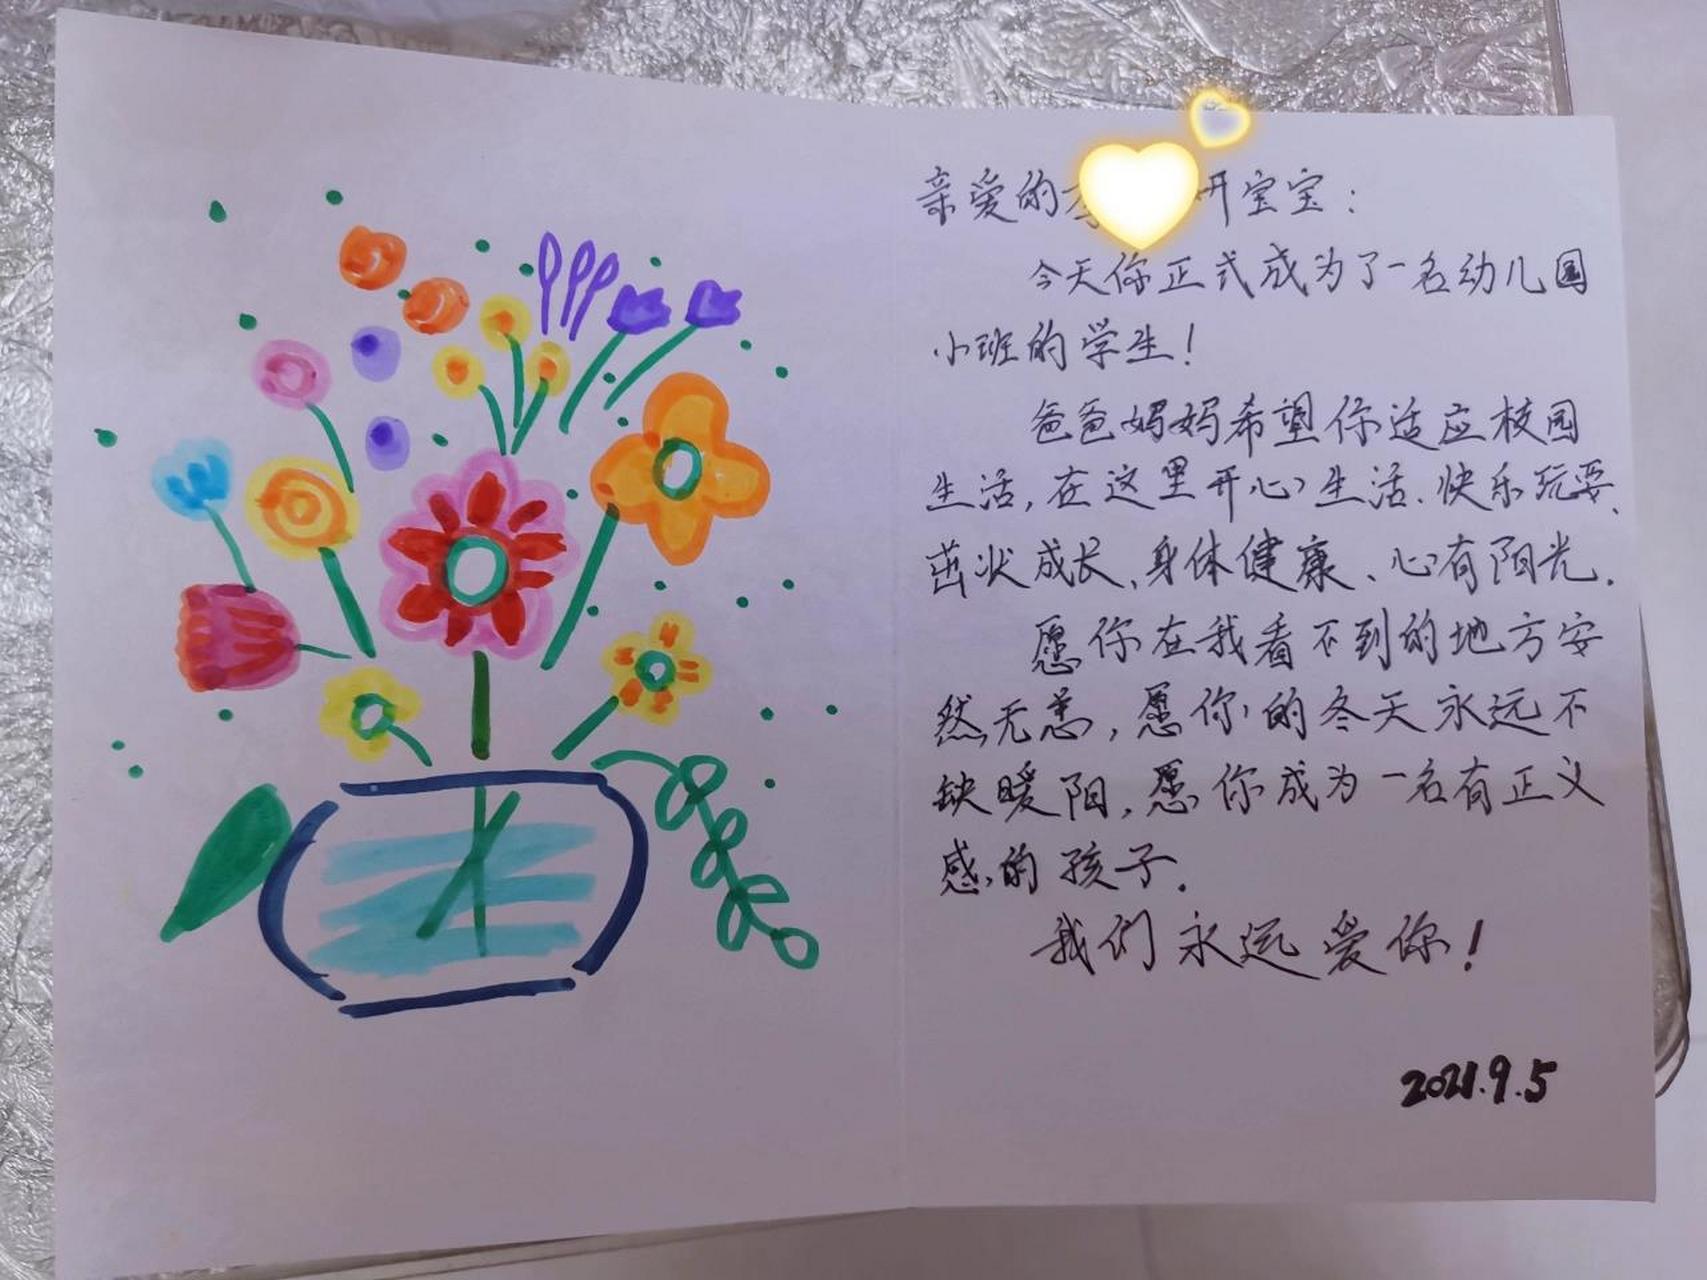 亲爱的 开宝宝：
今天你正式成为了一名幼儿园
小班的学生！
爸爸妈妈希望你适应校园
生活，在这里开心生活、快乐玩耍、
茁状成长、身体健康、心有阳光.
愿你在我看不到的地方安
然无恙，愿你的冬天永远不
缺暖阳，愿你成为一名有正义
感的孩子.
我们永远爱你！
2021.9.5